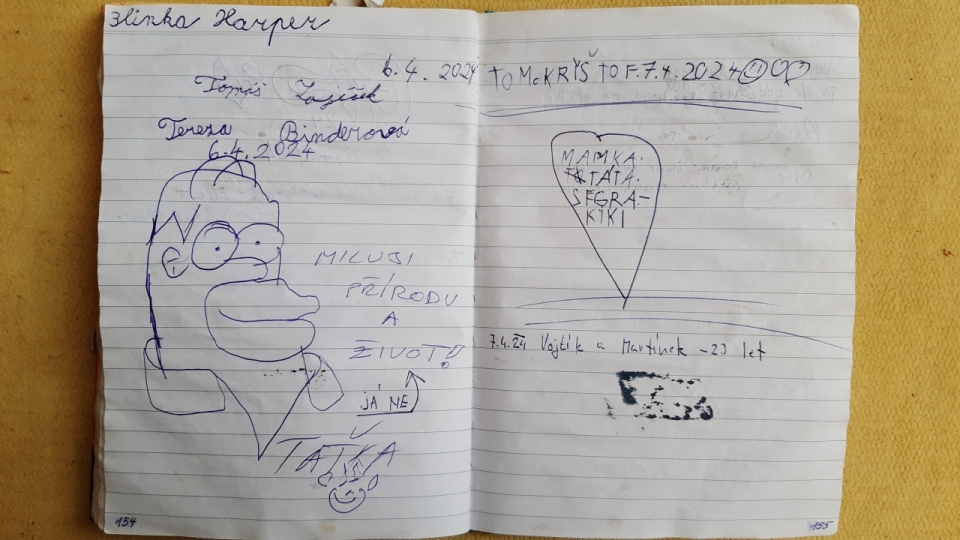 Žlinka Harper
6.4.2024
Tomáš Zajíček
Tereza Binderová
6.4.2024
MILUJI
PŘÍRODU
A
ŽIVOT!!
JÁ NE
TAŤKA
154
TOM KRYŠTOF.7.4.2024
MAMKA.
TÁTA.
SEGRA-
KIKI
7.4.24 Vojtík a Martínek -23 let
155